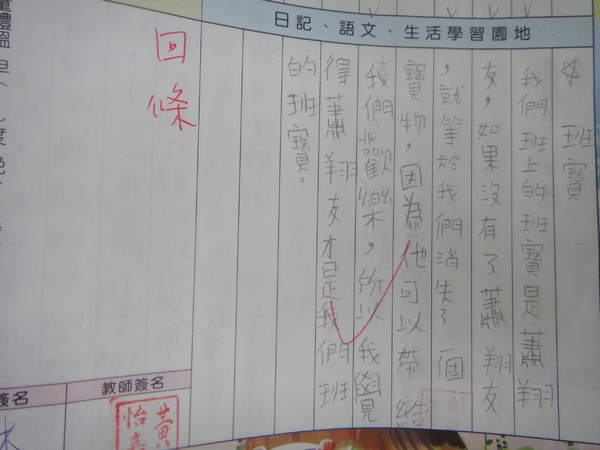 日記、語文、生活學習園地
☆ 班寶
我們班上的班寶是蕭翔
友,如果沒有了蕭翔友
,就等於我們消失了一個
寶物,因為他可以帶給
我們歡樂,所以我覺
得蕭翔友才是我們班
的班寶。
回條
教師簽名
黃
怡
簽名
量體溫 早( 度 晚(